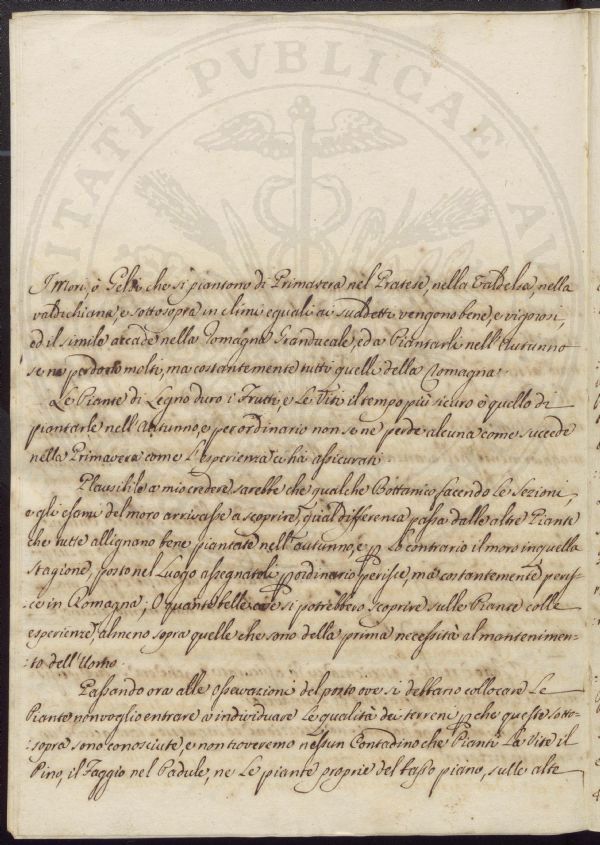 PVBLICAE
I Mori, ò Gelsi che si piantono di Primavera nel Pratese, nella Valdelsa, nella
valdichiana, e sottosopra in climi equali ai suddetti vengono bene, e vigorosi,
ed il simile accade nella Romagna Granducale, ed a Piantarli nell'Autunno
se ne perdono molti, ma costantemente tutti quelli della Romagna:
Le Piante di Legno duro i Frutti, e le Viti il tempo più sicuro è quello di
piantarle nell'Autunno, e per ordinario non se ne perde alcuna come succede
nella Primavera come l'esperienza ci hà assicurati:
Plausibile a mio credere sarebbe che qualche Bottanico facendo le Sezioni,
e gli esami del moro arrivasse a scoprire, qual differenza passa dalle altre Piante
che tutte allignano bene piantate nell'autunno, e p lo contrario il moro in quella
stagione, posto nel Luogo assegnatoli p ordinario perisce, ma costantemente peris=
ce in Romagna; O quante belle cose si potrebbero scoprire sulle Piante colle
esperienze, almeno sopra quelle che sono della prima necessità al mantenimen=
:to dell'Uomo:
Passando ora alle osservazioni del posto ove si debbano collocare le
Piante non voglio entrare a individuare le qualità dei terreni p che queste sotto=
:sopra sono conosciute, e non troveremo nessun Contadino che Pianti la Vite il
Pino, il Faggio nel Padule, ne le piante proprie del basso piano, sulle alte